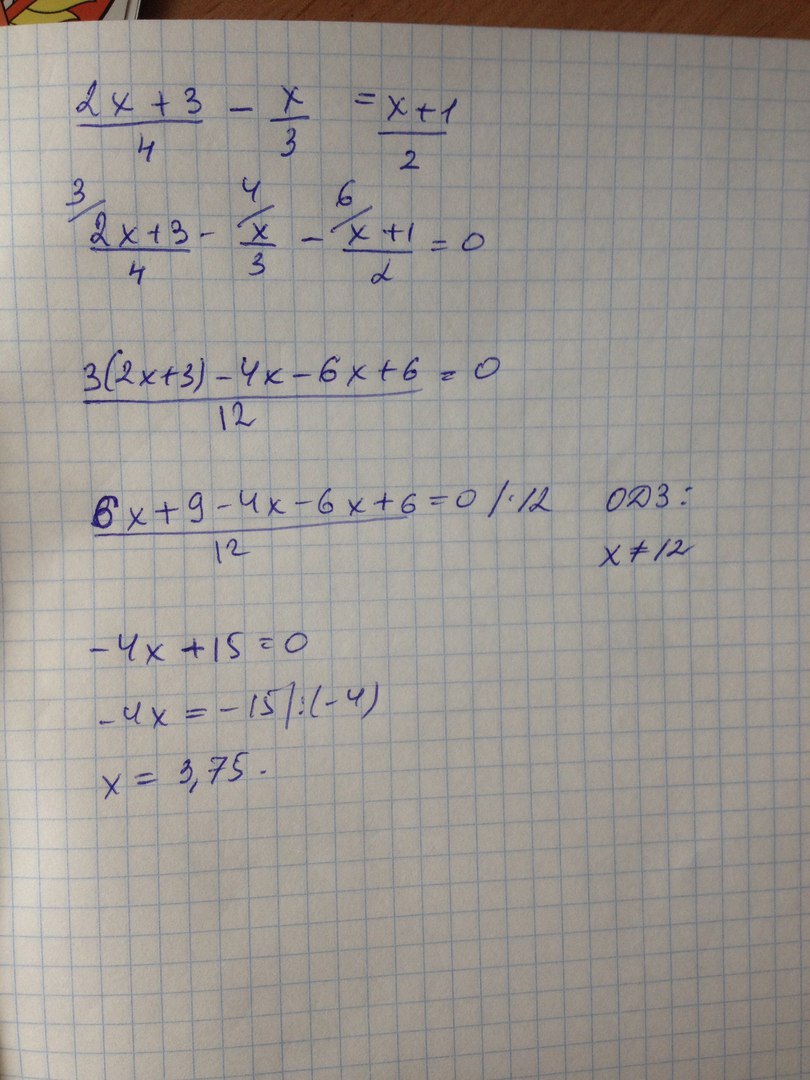 (2x + 3)/4 - x/3 = (x+1)/2
3/ (2x+3)/4 - 4/ x/3 - 6/ (x+1)/2 = 0
(3(2x+3) - 4x - 6x + 6)/12 = 0
(6x + 9 - 4x - 6x + 6)/12 = 0 /·12 ОДЗ:
x ≠ 12
-4x + 15 = 0
-4x = -15 /:(-4)
x = 3,75.